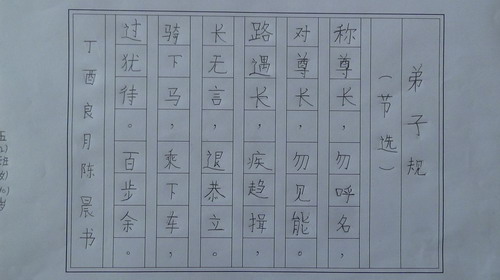 弟子规
（节选）
称尊长，勿呼名，
对尊长，勿见能。
路遇长，疾趋揖，
长无言，退恭立。
骑下马，乘下车，
过犹待。百步余。
丁酉良月陈晨书